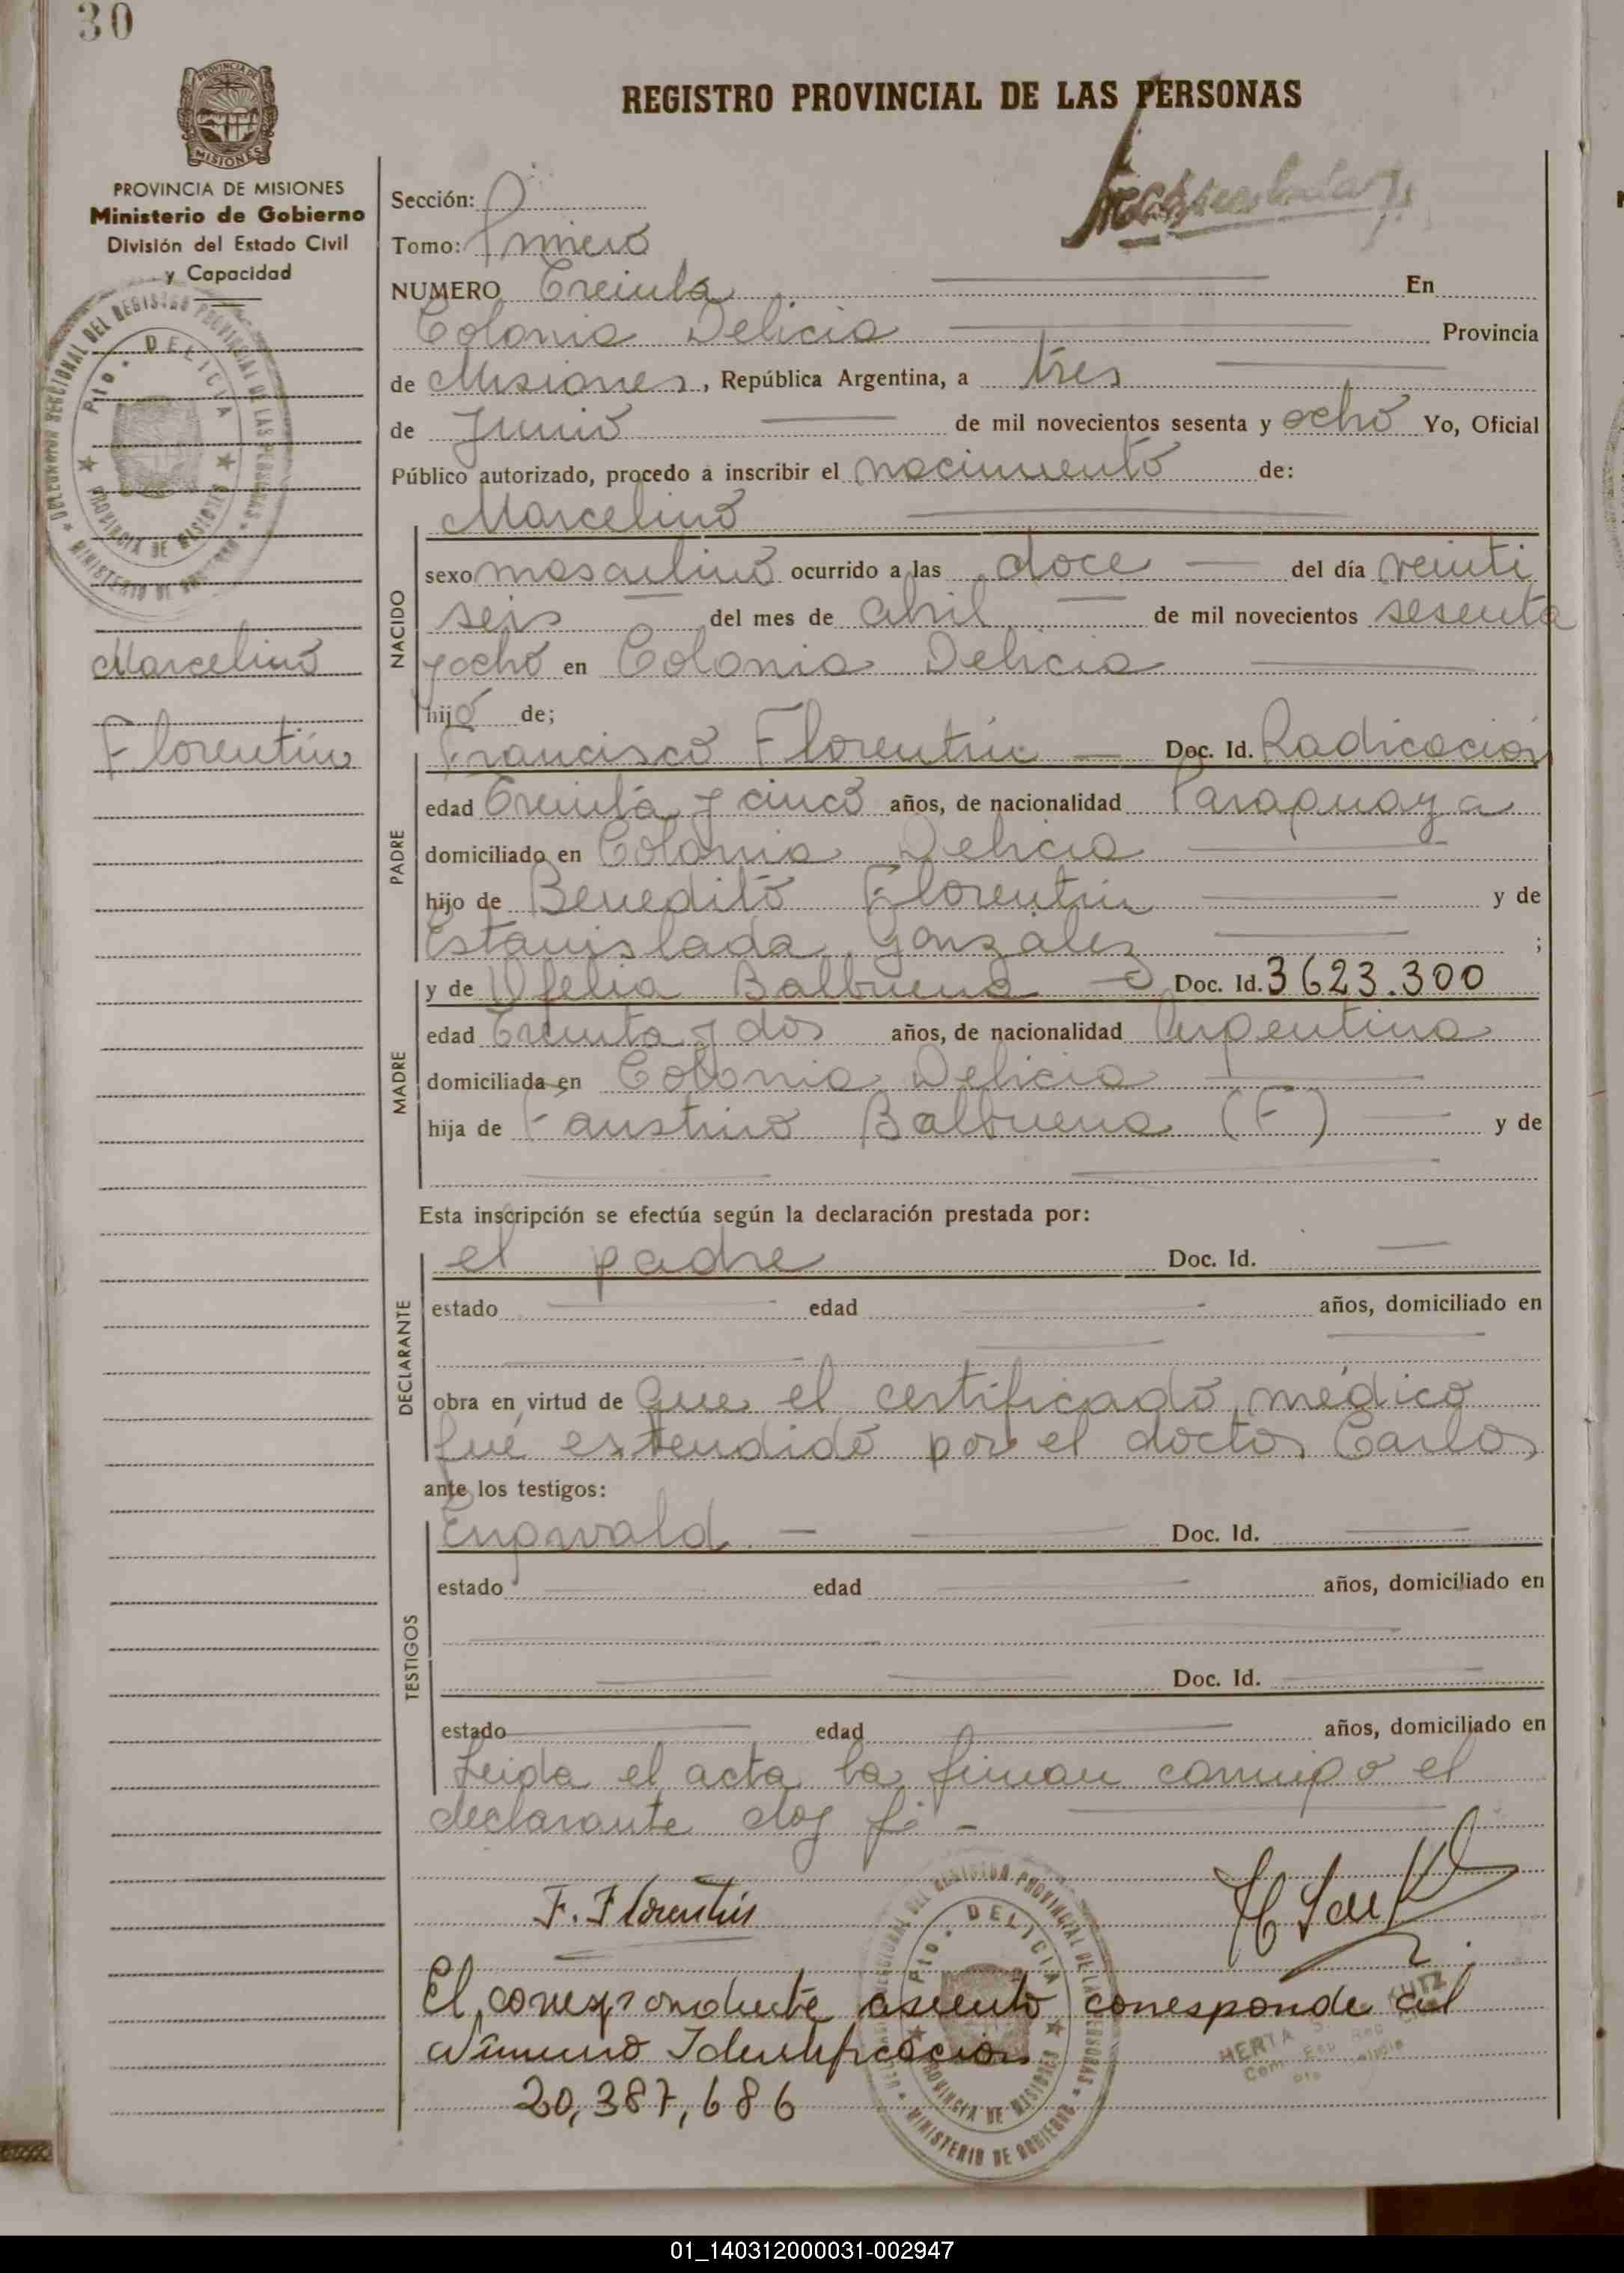 30
PROVINCIA DE
MISIONES
PROVINCIA DE MISIONES
Ministerio de Gobierno
División del Estado Civil
y Capacidad
Pto. DELICIA
PROVINCIA DE MISIONES
MINISTERIO DE GOBIERNO
Marcelino
Florentín
REGISTRO PROVINCIAL DE LAS PERSONAS
Sección:
Tomo: Primero
NUMERO Treinta En
Colonia Delicia Provincia
de Misiones, República Argentina, a tres
de Junio de mil novecientos sesenta y ocho Yo, Oficial
Público autorizado, procedo a inscribir el nacimiento de:
Marcelino
NACIDO
sexo masculino ocurrido a las doce del día veinti
seis del mes de abril de mil novecientos sesenta
y ocho en Colonia Delicia
hijo de;
PADRE
Francisco Florentín Doc. Id. Radicación
edad Treinta y cinco años, de nacionalidad Paraguaya
domiciliado en Colonia Delicia
hijo de Benedito Florentín y de
Estanislada Gonzalez ;
MADRE
y de Ofelia Balbuena Doc. Id. 3623.300
edad Treinta y dos años, de nacionalidad Argentina
domiciliada en Colonia Delicia
hija de Faustino Balbuena (F) y de
Esta inscripción se efectúa según la declaración prestada por:
DECLARANTE
el padre Doc. Id.
estado edad años, domiciliado en
obra en virtud de que el certificado médico
fué estendido por el doctor Carlos
ante los testigos:
TESTIGOS
Engwald Doc. Id.
estado edad años, domiciliado en
Doc. Id.
estado edad años, domiciliado en
Leida el acta la firman conmigo el
declarante doy fé -
F. Florentín
DELEGACION SECCIONAL DEL REGISTRO PROVINCIAL DE LAS PERSONAS
Pto. DELICIA
PROVINCIA DE MISIONES
MINISTERIO DE GOBIERNO
HERTA S. KUTZ
El correspondiente asiento corresponde al
Número Identificación
20,387,686
01_140312000031-002947